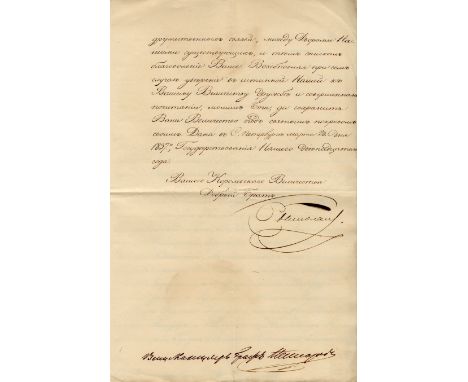 дружественного союза, между Дворами На-
шими существующаго, и тѣмъ снискать
благоволеніе Ваше. Впрочемъ при семъ
случаѣ увѣряя въ истинной Нашей къ
Вашему Величеству дружбѣ и совершенномъ
почитаніи, молимъ Бога, да сохранитъ
Ваше Величество подъ святымъ покровомъ
своимъ. Дана въ С. Петербургѣ марта дня
1837го Государствованія Нашего
года.
Вашего Королевскаго Величества
добрый братъ
Николай
Вице Канцлеръ Графъ Нессельроде